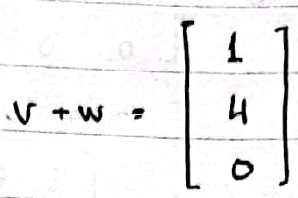 v + w = [1
4
0]